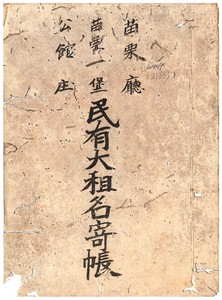 苗栗廳
苗栗一堡
公館庄
民有大租名寄帳